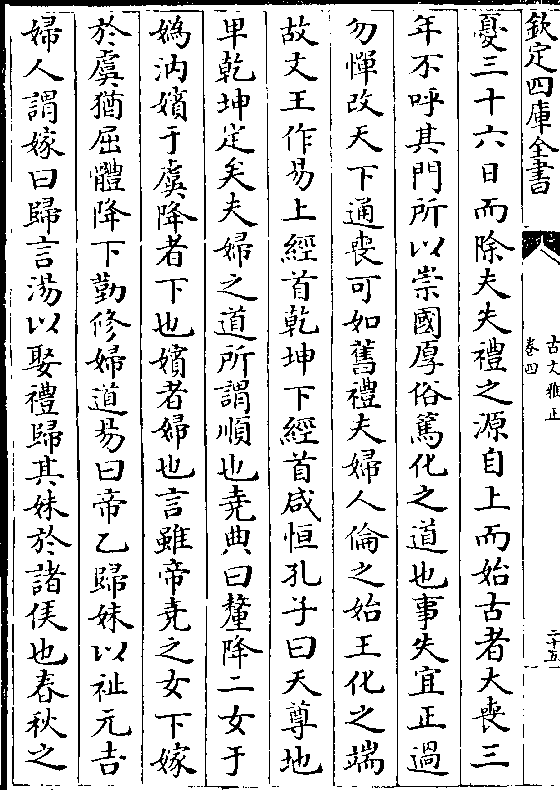 欽定四庫全書
古文雅正
卷四
二十五
憂三十六日而除夫失禮之源自上而始古者大喪三
年不呼其門所以崇國厚俗篤化之道也事失宜正過
勿憚改天下通喪可如舊禮夫婦人倫之始王化之端
故文王作易上經首乾坤下經首咸恒孔子曰天尊地
卑乾坤定矣夫婦之道所謂順也堯典曰釐降二女于
媯汭嬪于虞降者下也嬪者婦也言雖帝堯之女下嫁
於虞猶屈體降下勤修婦道易曰帝乙歸妹以祉元吉
婦人謂嫁曰歸言湯以娶禮歸其妹於諸侯也春秋之